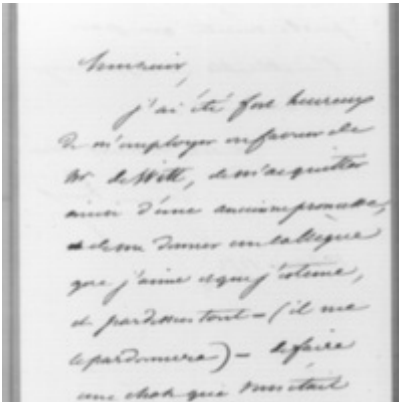 Monsieur,
j'ai été fort heureux
de m'employer en faveur de
Mr. de Witt, de m'acquitter
ainsi d'une ancienne promesse,
de me donner un collègue
que j'aime et que j'estime,
et pardessus tout – (il me
le pardonnera) – de faire
une chose qui vous était